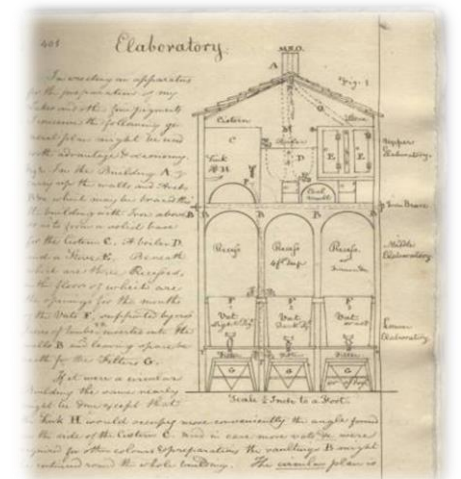 401 Elaboratory.
In erecting an apparatus
for the preparation of my
Lakes and other fine pigments
I conceive the following ge
neral plan might be used
with advantage & economy.
In the Building A
carry up the walls and Arches
B which may be bound thro
the building with Iron above
so as to form a solid base
for the Cistern C. A boiler D
and a Stove E. Beneath
which are three Recesses,
the floors of which are
the openings for the mouths
of the Vats F, supported by cross
of timber inserted into the
walls B and leaving space be
neath for the Filters G.
If it were a circular
Building the same nearly
might be done except that
Sink H would occupy more conveniently the angle found
the side of the Cistern C. And in case more vats were
required for other colours & preparations the vaultings B might
be continued round the whole building. The circular plan is
A
Fig. 1
Cistern
Stove
C
Boiler
D
E
E
Sink
H
Upper
Elaboratory.
Iron Brace
B
B
B
B
Recess
Recess
Recess
Middle
Elaboratory
F
F
F
Vat
Vat
Vat
Lower
Elaboratory
G
G
G
Scale ¼ Inch to a Foot.